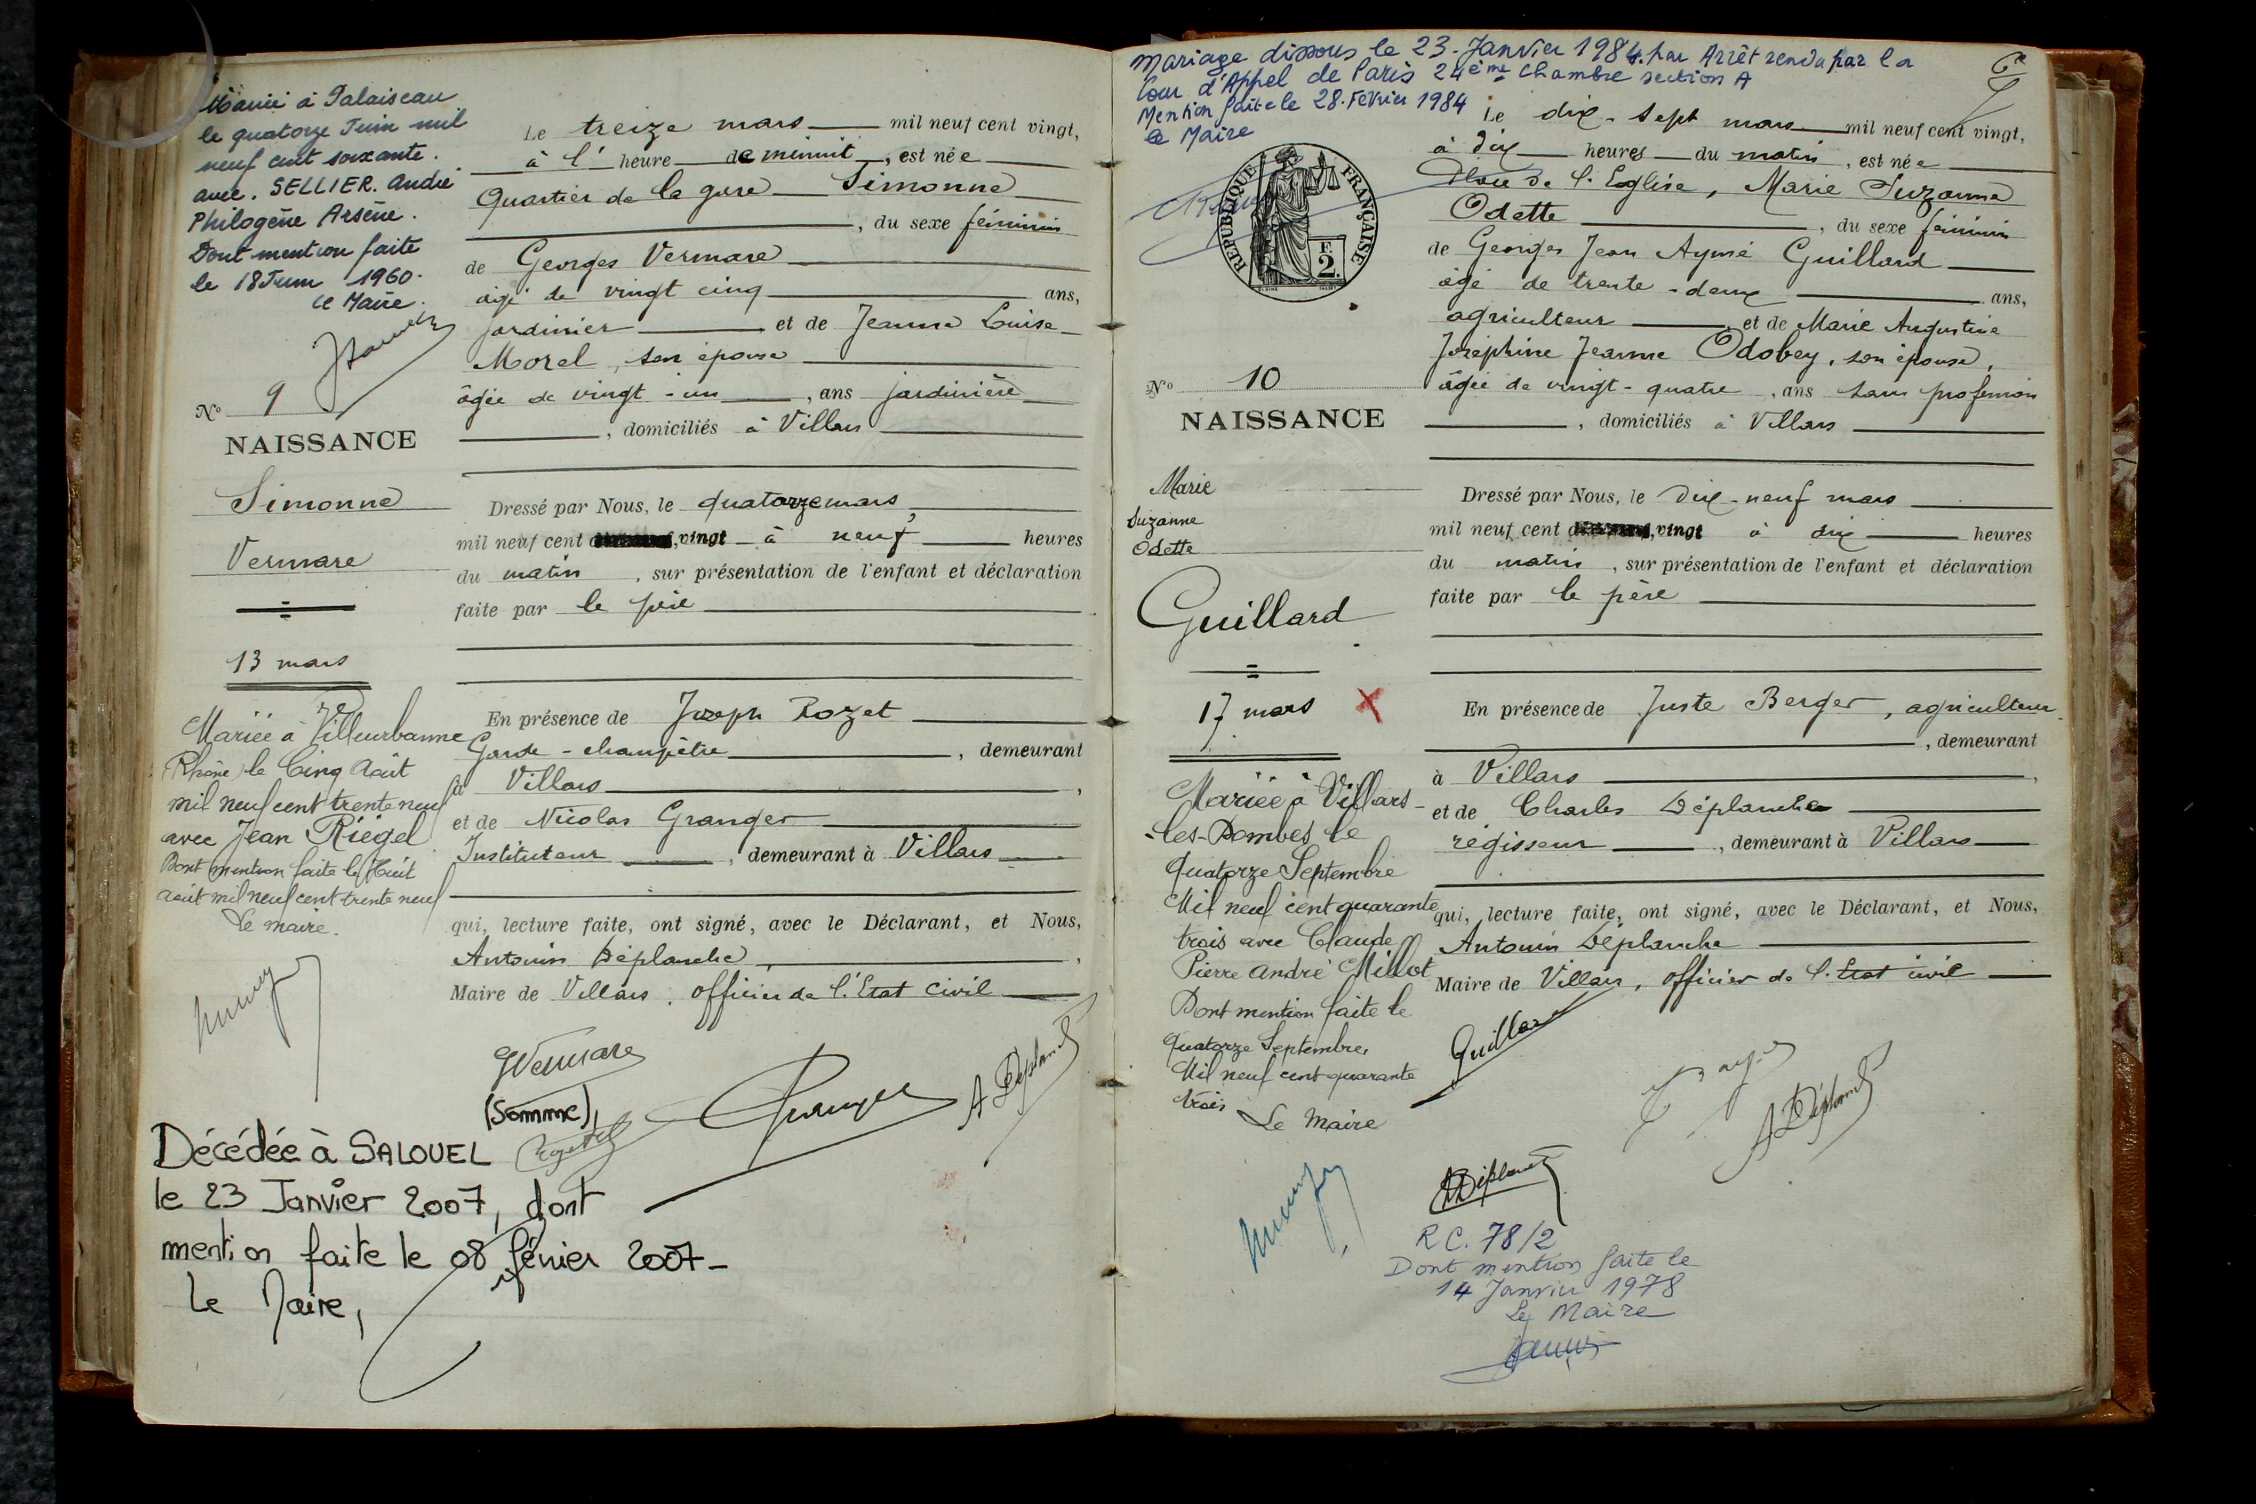 Mariée à Palaiseau
le quatorze Juin mil
neuf cent soixante.
avec. SELLIER. André
Philogène Arsène.
Dont mention faite
le 18 Juin 1960.
Le Maire.
N° 9
NAISSANCE
Simonne
Vermare
13 mars
Mariée à Villeurbanne
(Rhône) le Cinq Août
mil neuf cent trente neuf
avec Jean Riégel
Dont mention faite le Huit
août mil neuf cent trente neuf
Le maire.
Le treize mars mil neuf cent vingt,
à l' heure de minuit, est née
Quartier de la gare Simonne
, du sexe féminin
de Georges Vermare
âgé de vingt cinq ans,
jardinier et de Jeanne Louise
Morel, son épouse
âgée de vingt-un, ans jardinière
, domiciliés à Villars
Dressé par Nous, le quatorze mars,
mil neuf cent vingt à neuf heures
du matin, sur présentation de l'enfant et déclaration
faite par le père
En présence de Joseph Rozet
Garde-champêtre, demeurant
à Villars,
et de Nicolas Granger
Instituteur, demeurant à Villars
qui, lecture faite, ont signé, avec le Déclarant, et Nous,
Antonin Déplanche,
Maire de Villars, officier de l'Etat civil
GVermare
Granger
A Déplanche
(Somme),
Décédée à SALOUEL
le 23 Janvier 2007, dont
mention faite le 08 février 2007-
Le Maire,
Mariage dissous le 23. Janvier 1984. par Arrêt rendu par la
Cour d'Appel de Paris 24ème Chambre section A
Mention faite le 28. Février 1984
Le Maire
REPUBLIQUE FRANÇAISE
F.
2.
N° 10
NAISSANCE
Marie
Suzanne
Odette
Guillard
17 mars X
Mariée à Villars-
les-Dombes le
Quatorze Septembre
Mil neuf cent quarante
trois avec Claude
Pierre André Millot
Dont mention faite le
Quatorze Septembre
Mil neuf cent quarante
trois
Le Maire
Le dix-sept mars mil neuf cent vingt,
à dix heures du matin, est née
Place de l'Eglise, Marie Suzanne
Odette, du sexe féminin
de Georges Jean Aymé Guillard
âgé de trente-deux ans,
agriculteur, et de Marie Augustine
Joséphine Jeanne Odobey, son épouse,
âgée de vingt-quatre, ans sans profession
, domiciliés à Villars
Dressé par Nous, le dix-neuf mars
mil neuf cent vingt à dix heures
du matin, sur présentation de l'enfant et déclaration
faite par le père
En présence de Juste Berger, agriculteur
, demeurant
à Villars,
et de Charles Déplanche
régisseur, demeurant à Villars
qui, lecture faite, ont signé, avec le Déclarant, et Nous,
Antonin Déplanche
Maire de Villars, officier de l'Etat civil
Guillard
A Déplanche
Déplanche
RC. 78/2
Dont mention faite le
14 Janvier 1978
Le Maire